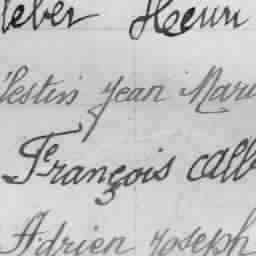 leber Henri
lestin Jean Mari
François Alb
Adrien Joseph